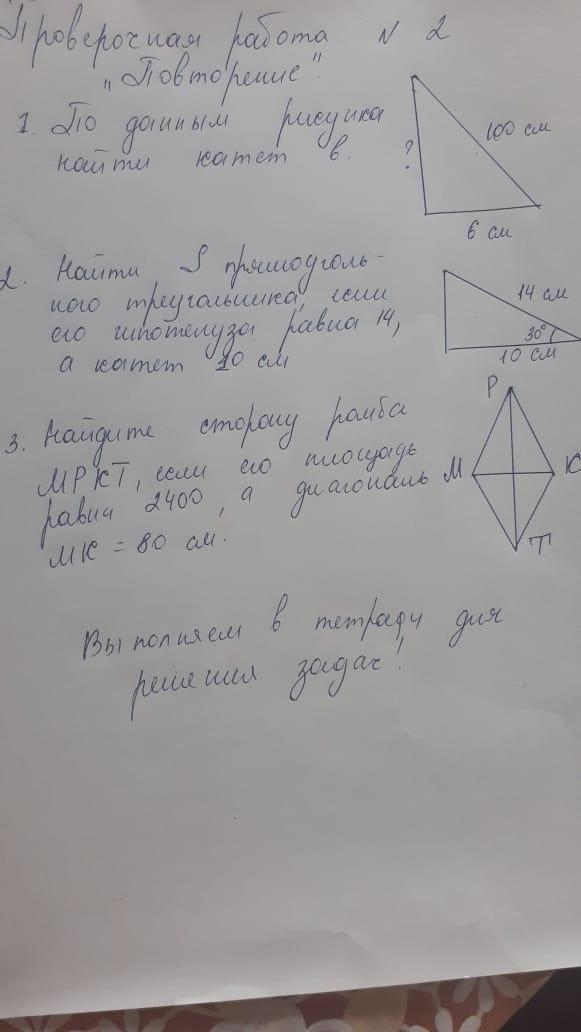 Проверочная работа N 2
"Повторение".
1. По данным рисунка
найти катет в.
?
100 см
6 см
2. Найти S прямоуголь-
ного треугольника, если
его гипотенуза равна 14,
а катет 10 см
14 см
30°
10 см
3. Найдите сторону ромба
МРКТ, если его площадь
равна 2400, а диагональ
МК = 80 см.
Р
М
К
Т
Выполняем в тетради для
решения задач!